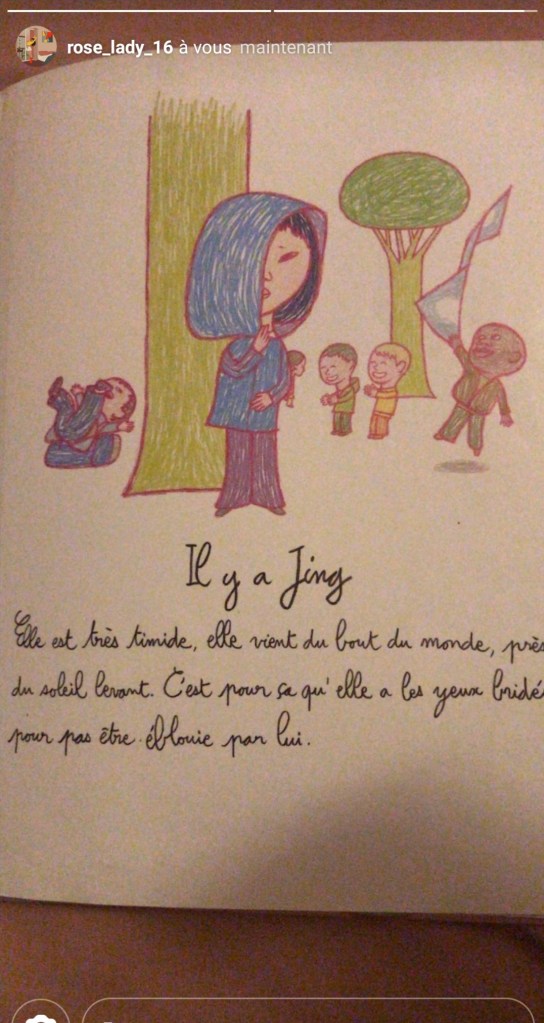 rose_lady_16 à vous maintenant
Il y a Jing
Elle est très timide, elle vient du bout du monde, près
du soleil levant. C'est pour ça qu'elle a les yeux bridé
pour pas être éblouie par lui.